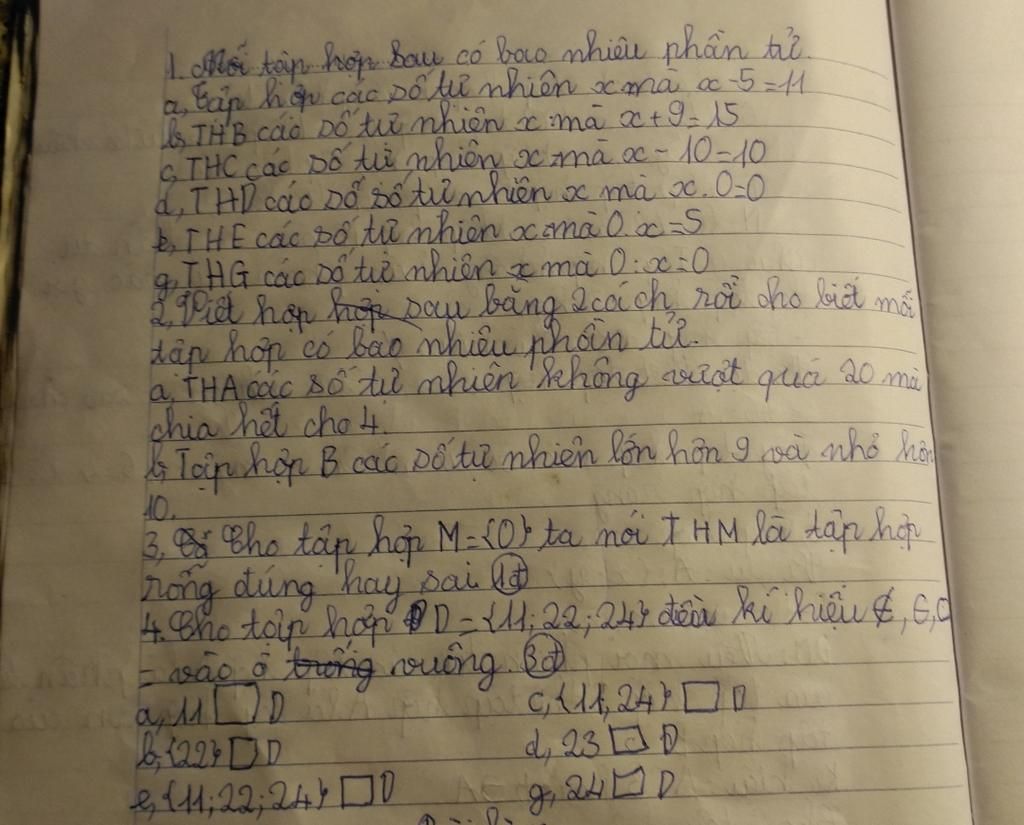 1. Mỗi tập hợp sau có bao nhiêu phần tử.
a, Tập hợp các số tự nhiên x mà x-5=11
b, THB các số tự nhiên x mà x+9=15
c, THC các số tự nhiên x mà x-10=10
d, THD các số số tự nhiên x mà x.0=0
e, THE các số tự nhiên x mà 0.x=5
g, THG các số tự nhiên x mà 0:x=0
2, Viết hợp hợp sau bằng 2 cách rồi cho biết mỗi
tập hợp có bao nhiêu phần tử.
a, THA các số tự nhiên không vượt quá 20 mà
chia hết cho 4.
b, Tập hợp B các số tự nhiên lớn hơn 9 và nhỏ hơn
10.
3, Cho tập hợp M={0} ta nói THM là tập hợp
rỗng đúng hay sai 1đ
4. Cho tập hợp D={11;22;24} điền kí hiệu ∉, ∈, ⊂
= vào ô trống vuông. 3đ
a, 11 □ D c, {11,24} □ D
b, {22} □ D d, 23 □ D
e, {11;22;24} □ D g, 24 □ D